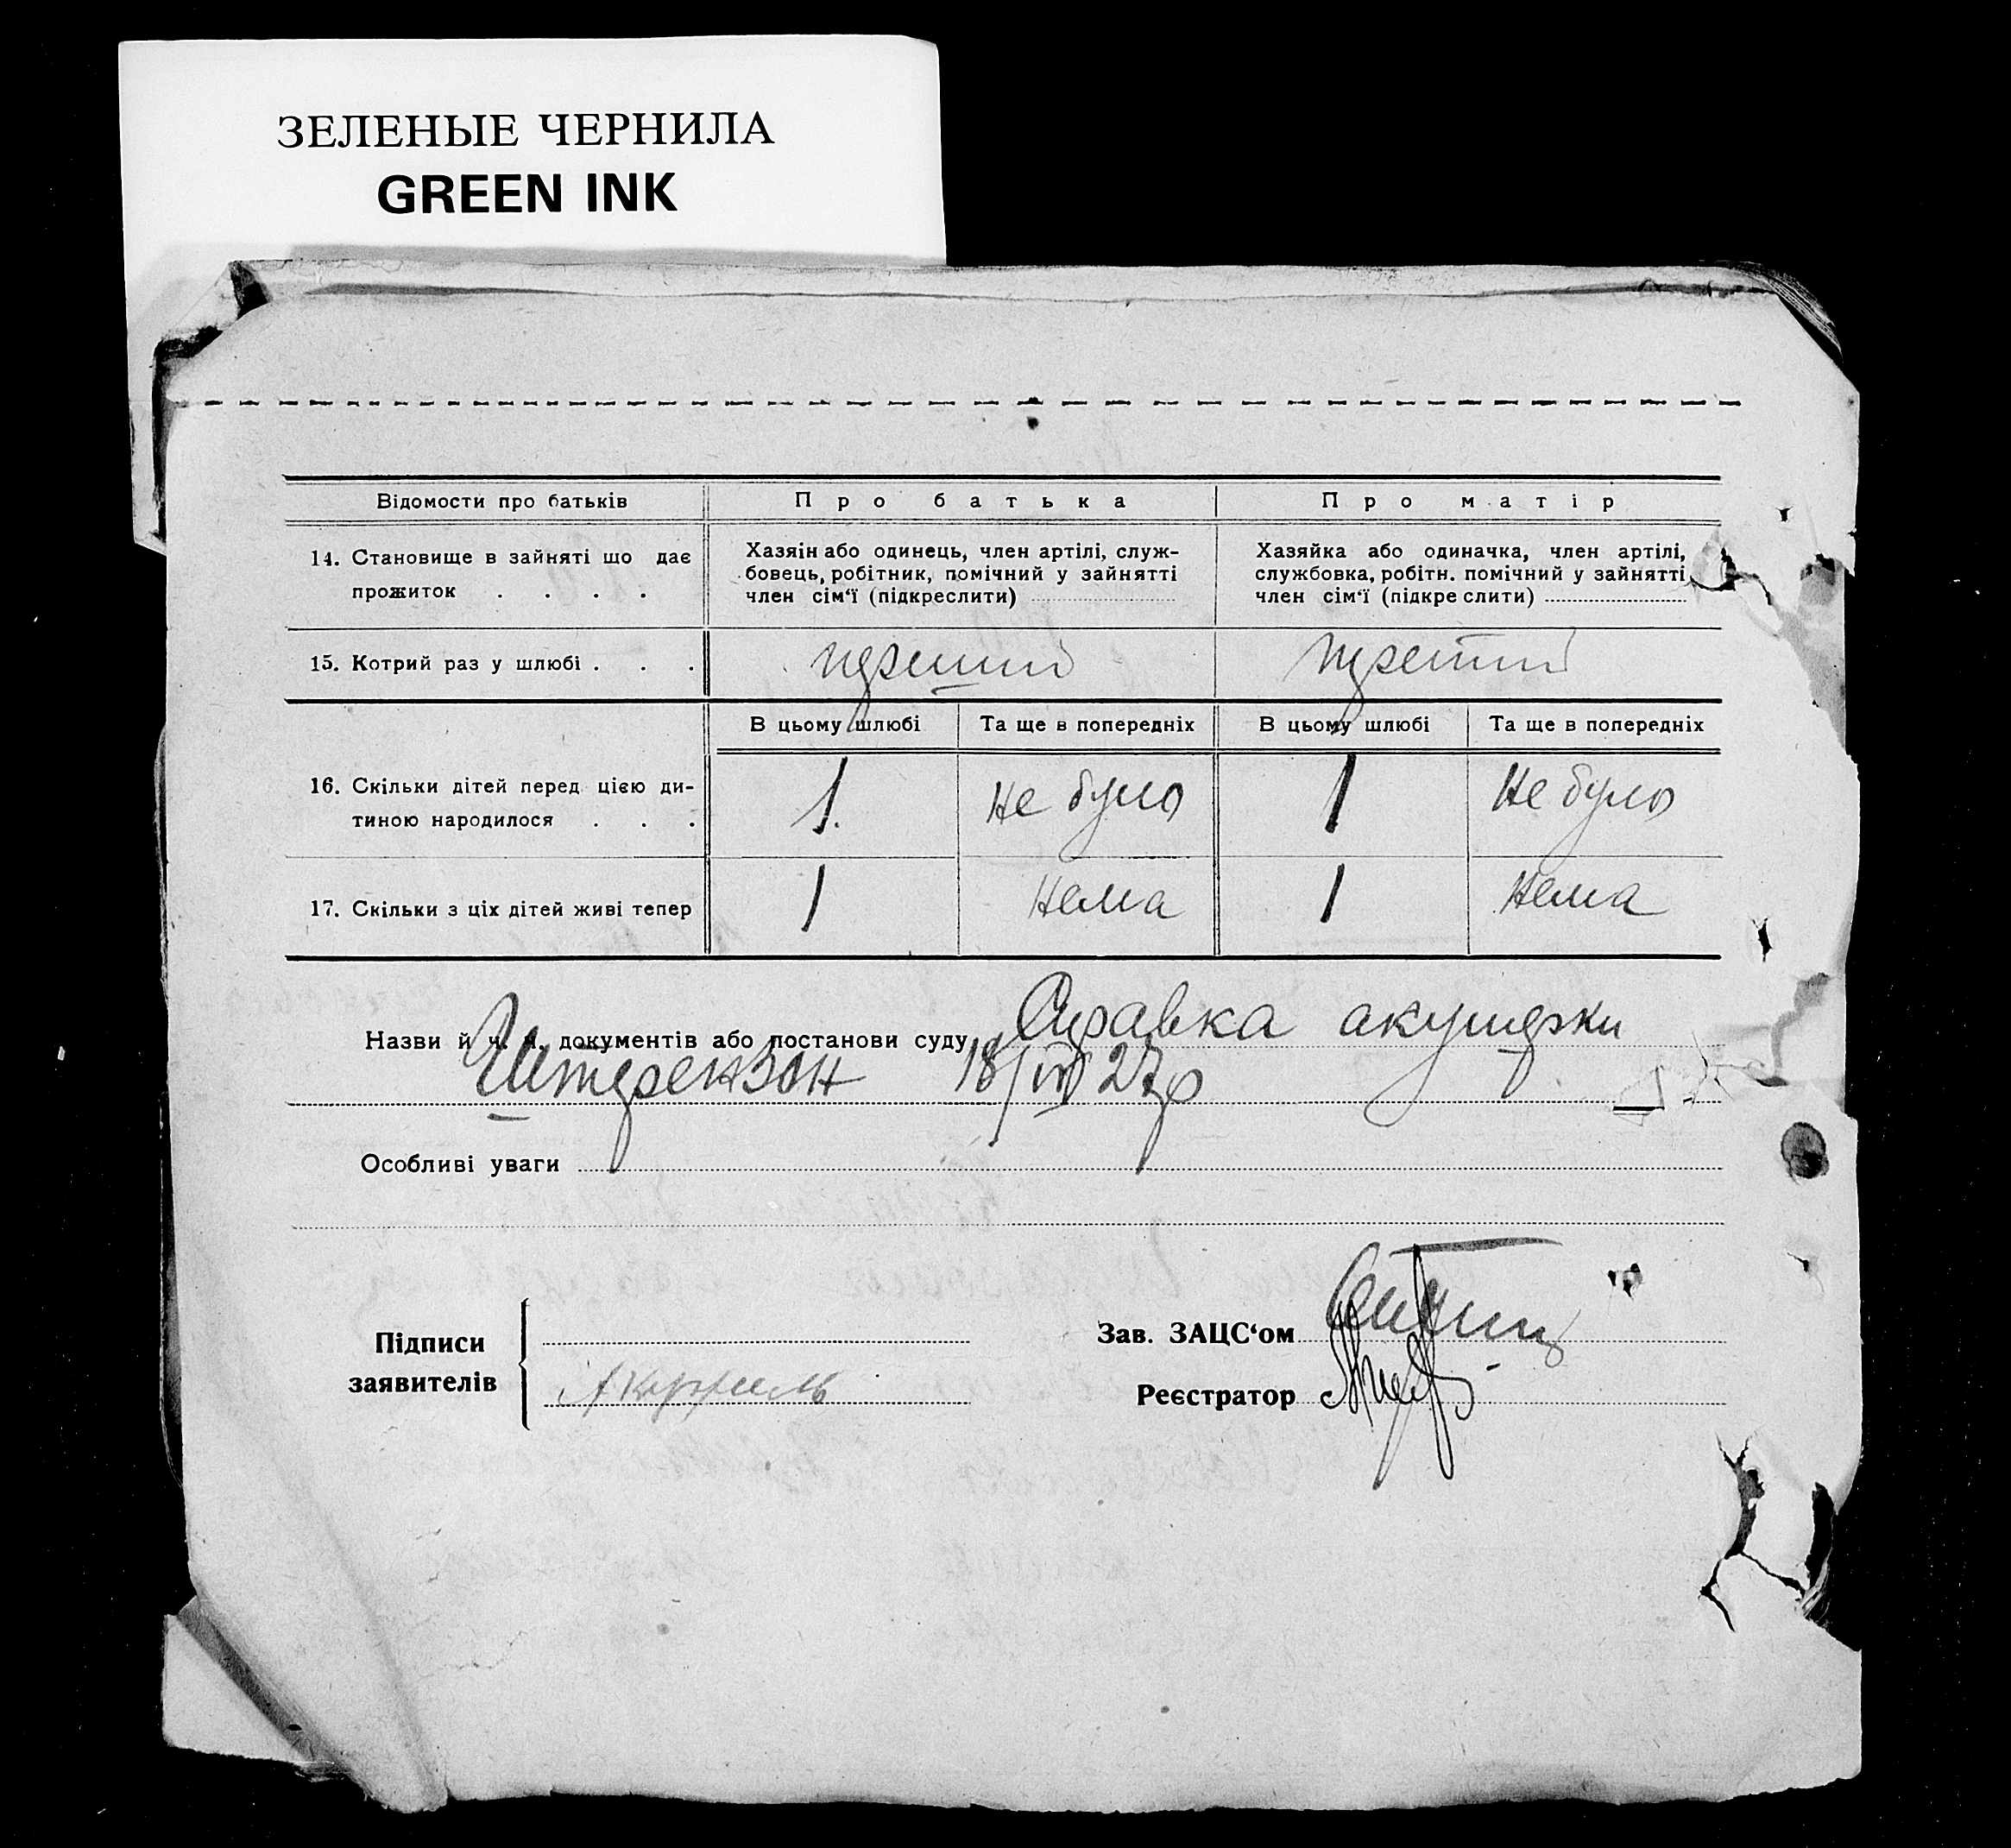 ЗЕЛЕНЫЕ ЧЕРНИЛА
GREEN INK
Відомости про батьків Про батька Про матір
14. Становище в зайняті що дає прожиток . . . .
Хазяін або одинець, член артілі, служ-
бовець, робітник, помічний у зайнятті
член сім'ї (підкреслити)
Хазяйка або одиначка, член артілі,
службовка, робітн. помічний у зайнятті
член сім'ї (підкреслити)
15. Котрий раз у шлюбі . . .
В цьому шлюбі Та ще в попередніх В цьому шлюбі Та ще в попередніх
16. Скільки дітей перед цією ди-
тиною народилося . . . 1. Не було 1 Не було
17. Скільки з ціх дітей живі тепер 1 Нема 1 Нема
Назви й ч. ч. документів або постанови суду Справка акушерки
Штерензон 18/VII 27р
Особливі уваги
Підписи
заявителів
Зав. ЗАЦС'ом
Реєстратор